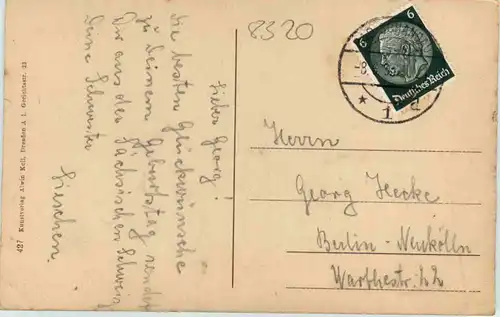 8320
Lieber Georg!
Die besten Glückwünsche
zu Deinem Geburtstag sendet
Dir aus der Sächsischen Schweiz
Deine Schwester
Lieschen.
6
6
Deutsches Reich
Herrn
Georg Hecke
Berlin-Neukölln
Warthestr. 22
427 Kunstverlag Alwin Keil, Dresden A 1, Gerichtsstr. 23